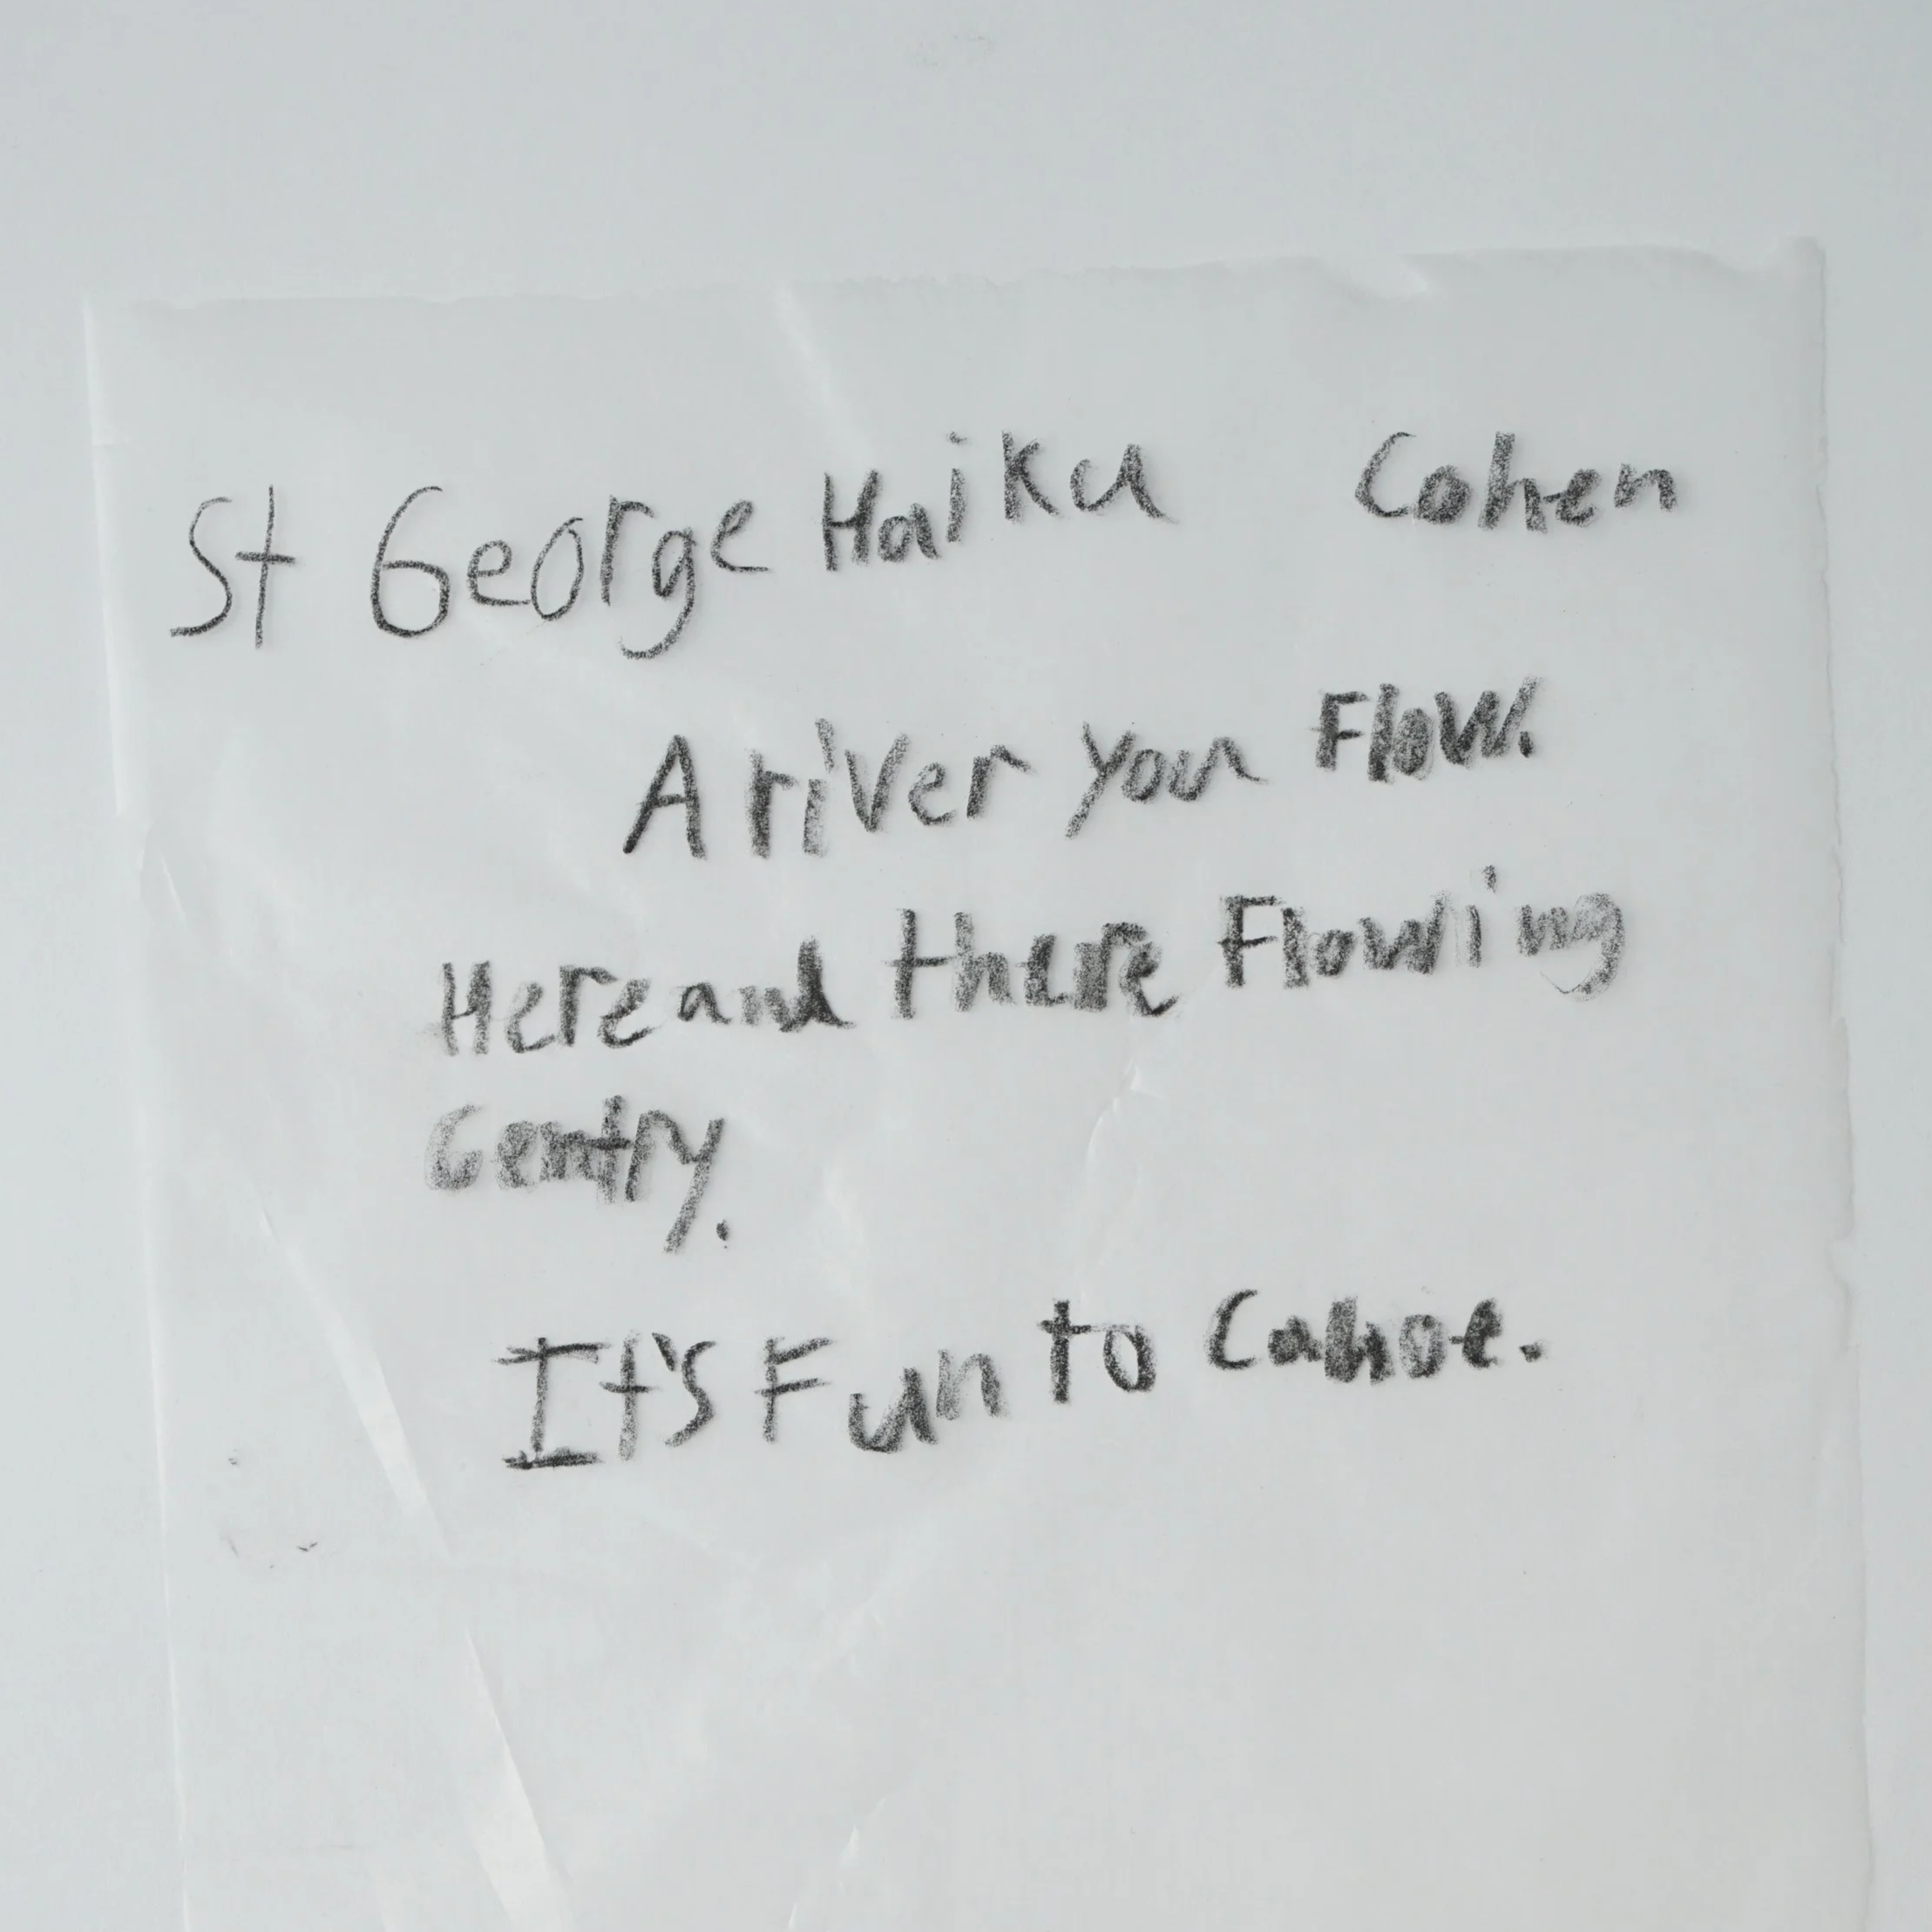 St George Haiku Cohen
A river you Flow.
Here and there Flowing
Gently.
It's Fun to Cahoe.